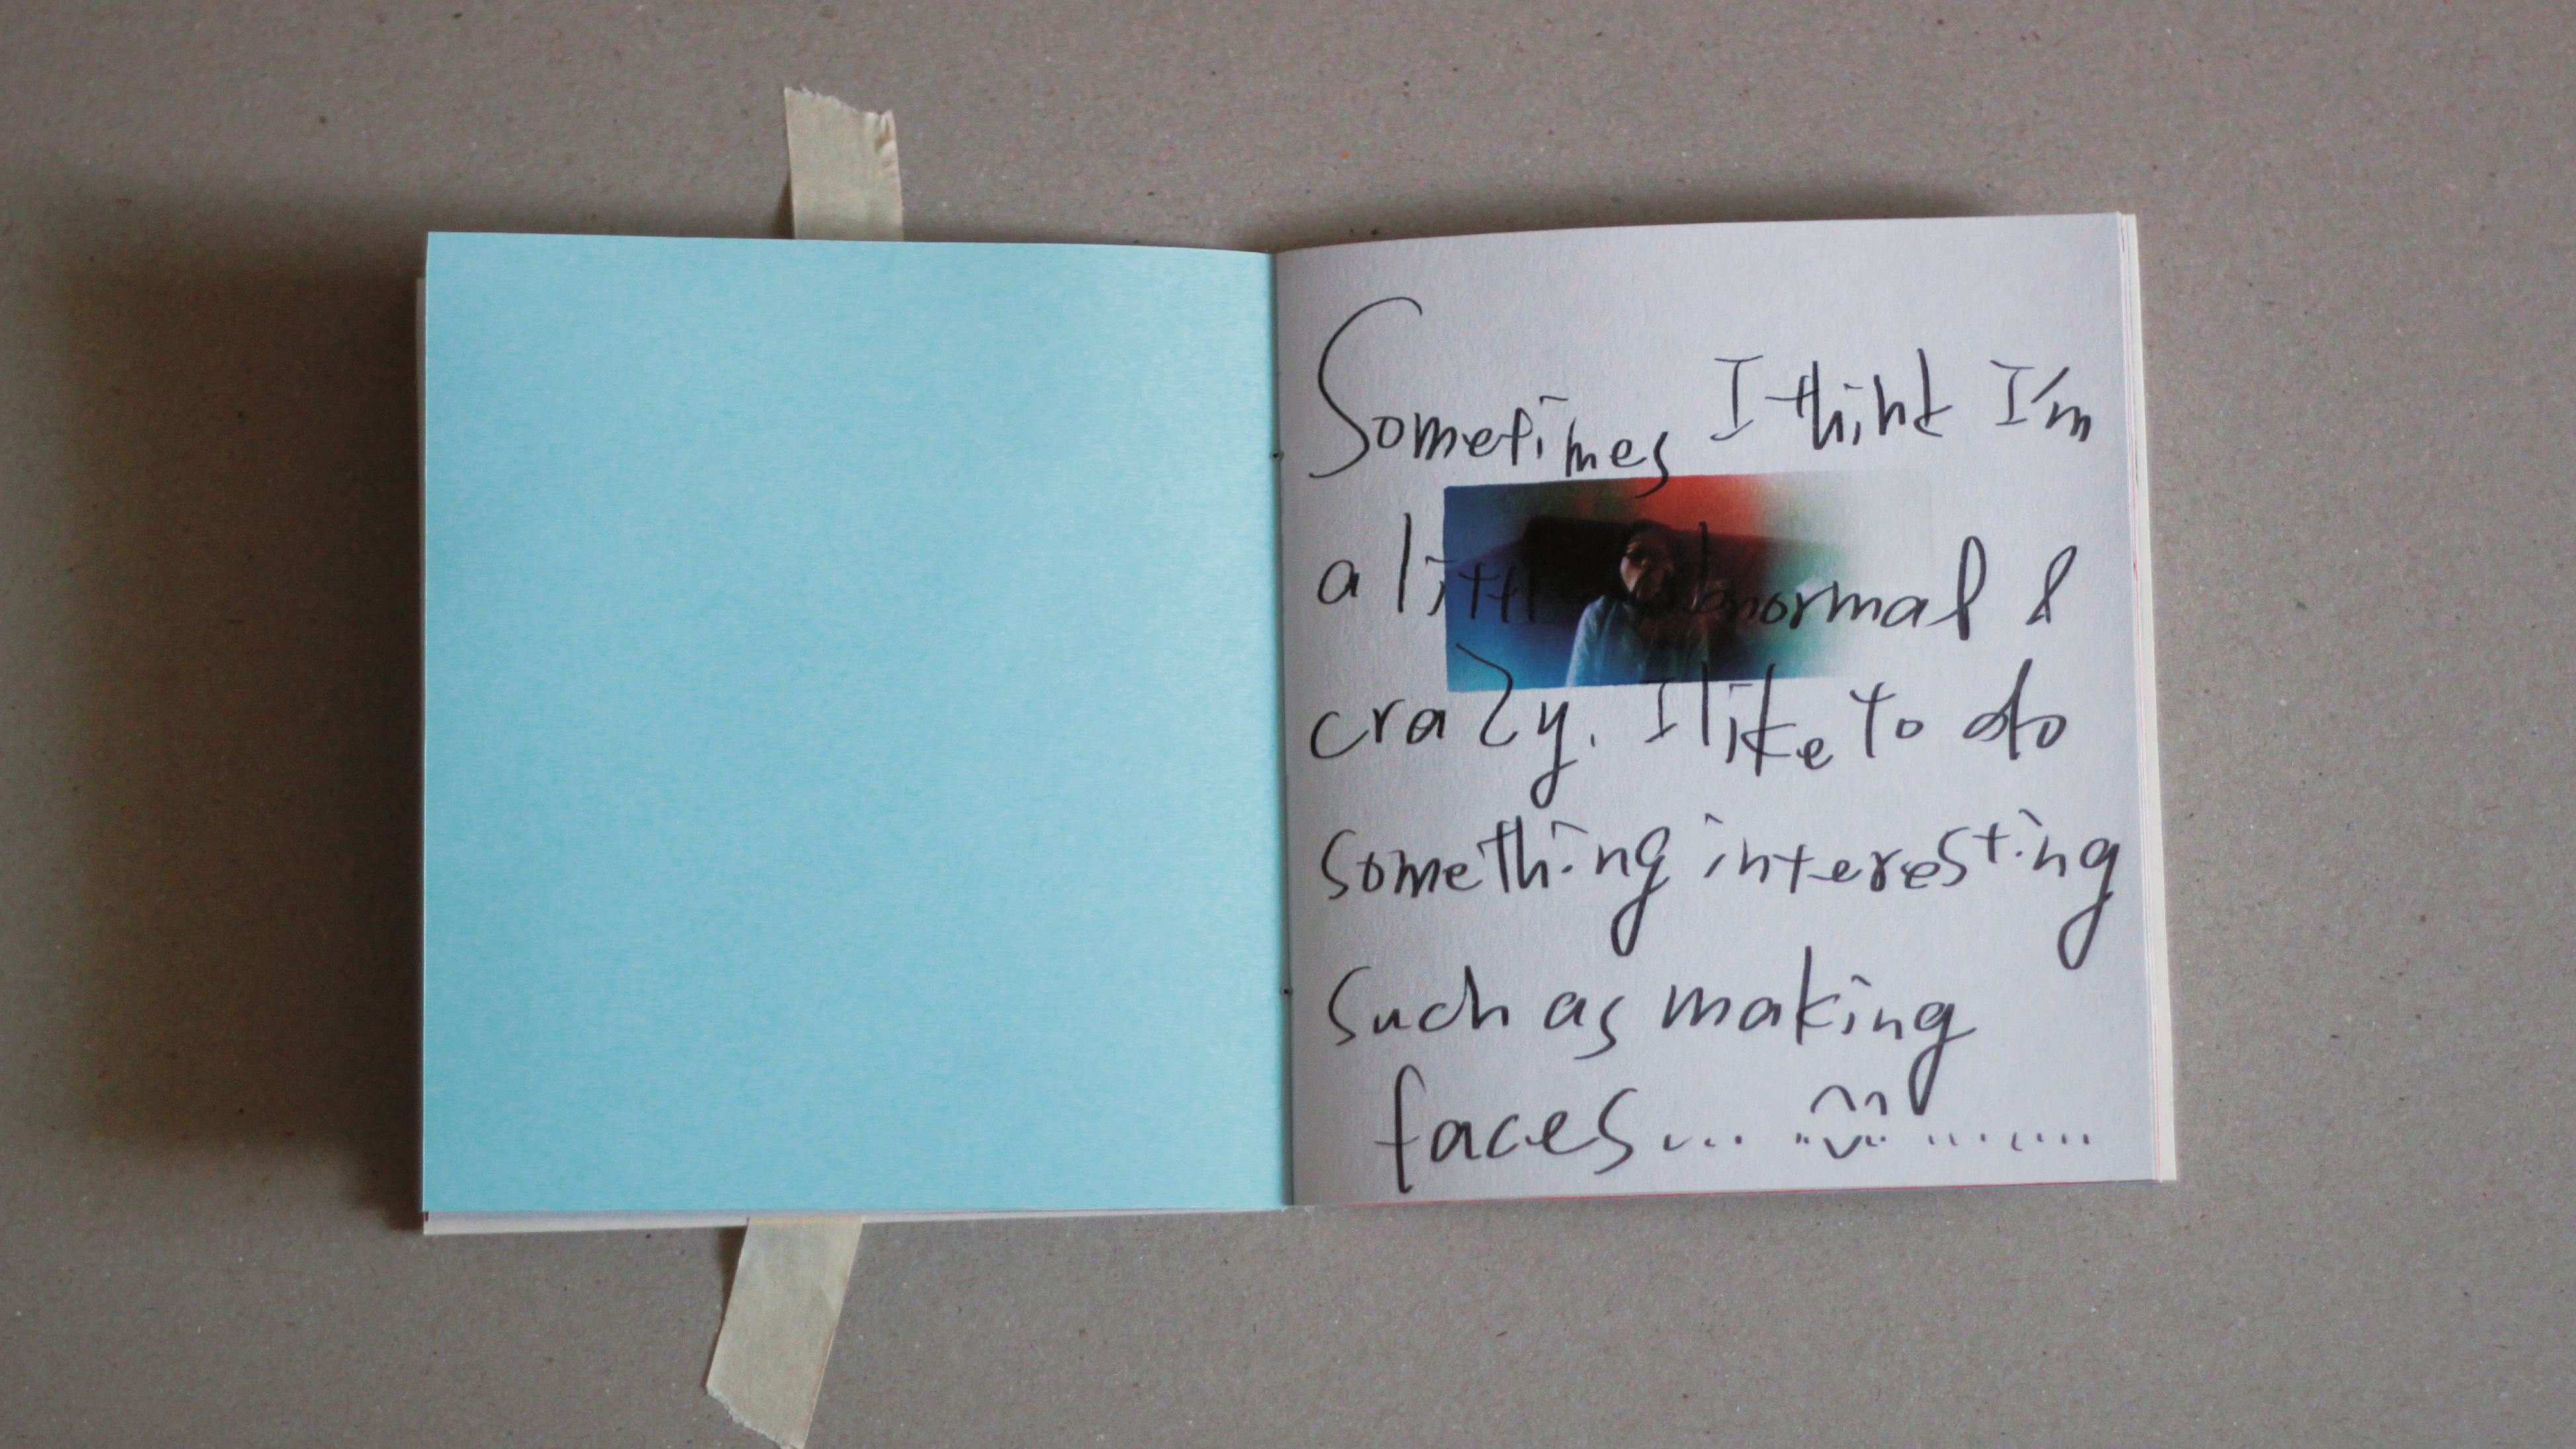 Sometimes I think I'm
a little abnormal &
crazy. I like to do
something interesting
such as making
faces... ..^ᵕ^.. .......